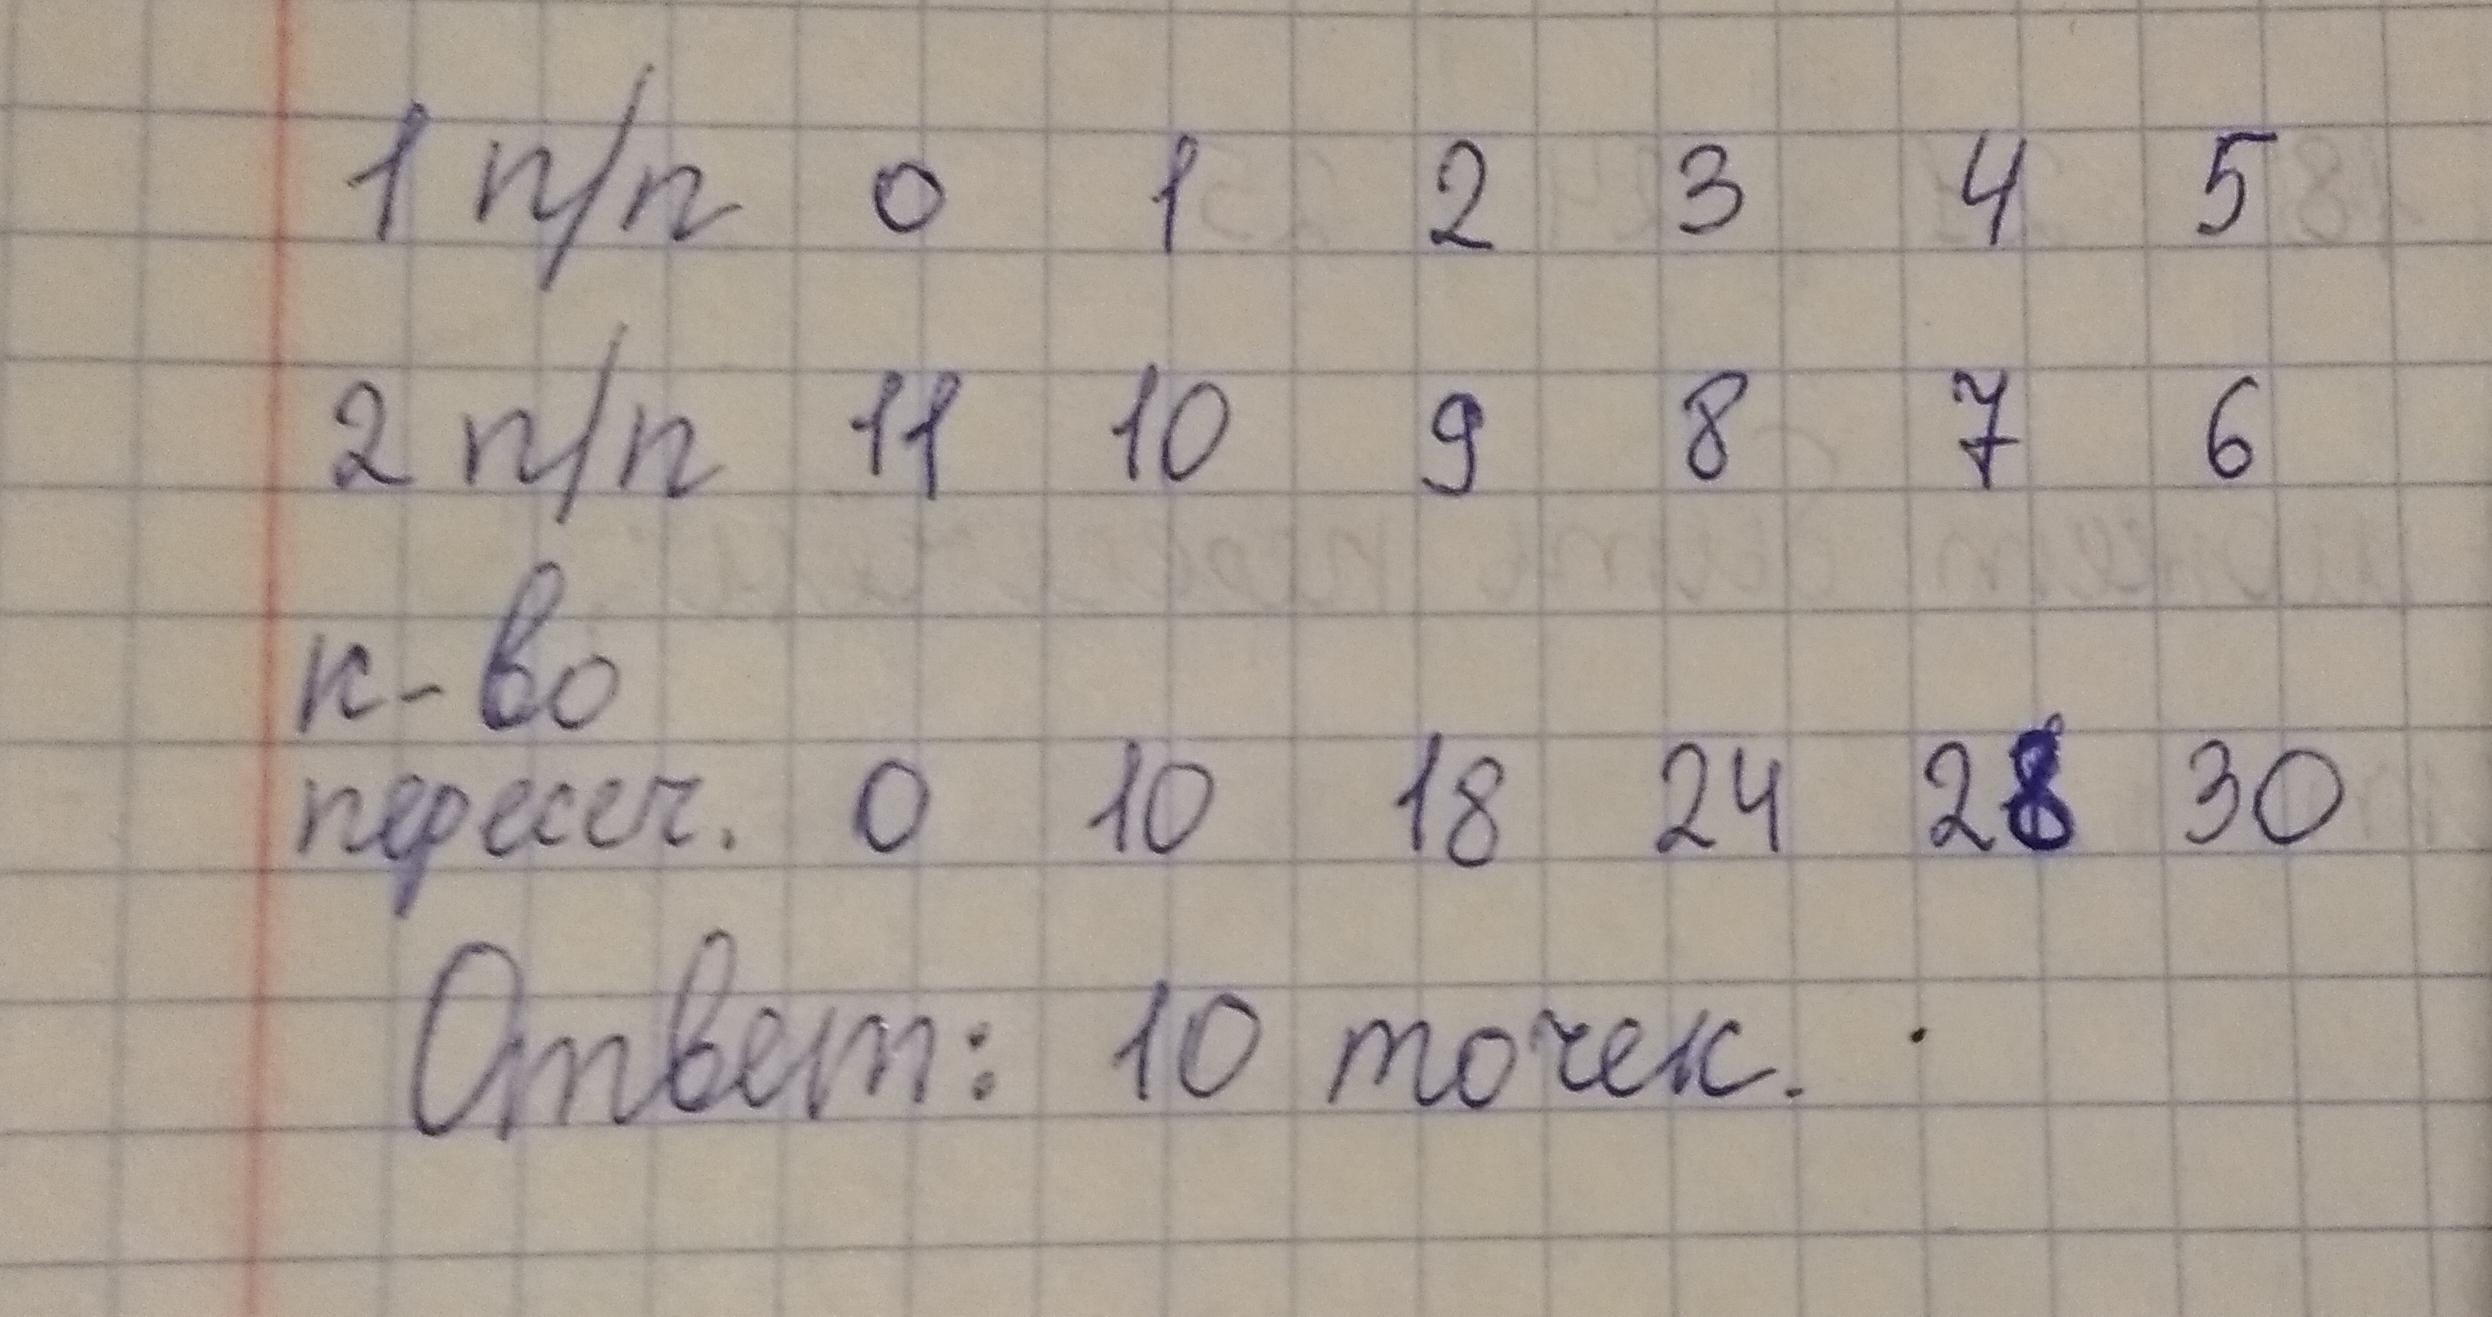 1 п/п 0 1 2 3 4 5
2 п/п 11 10 9 8 7 6
к-во
пересеч. 0 10 18 24 28 30
Ответ: 10 точек.